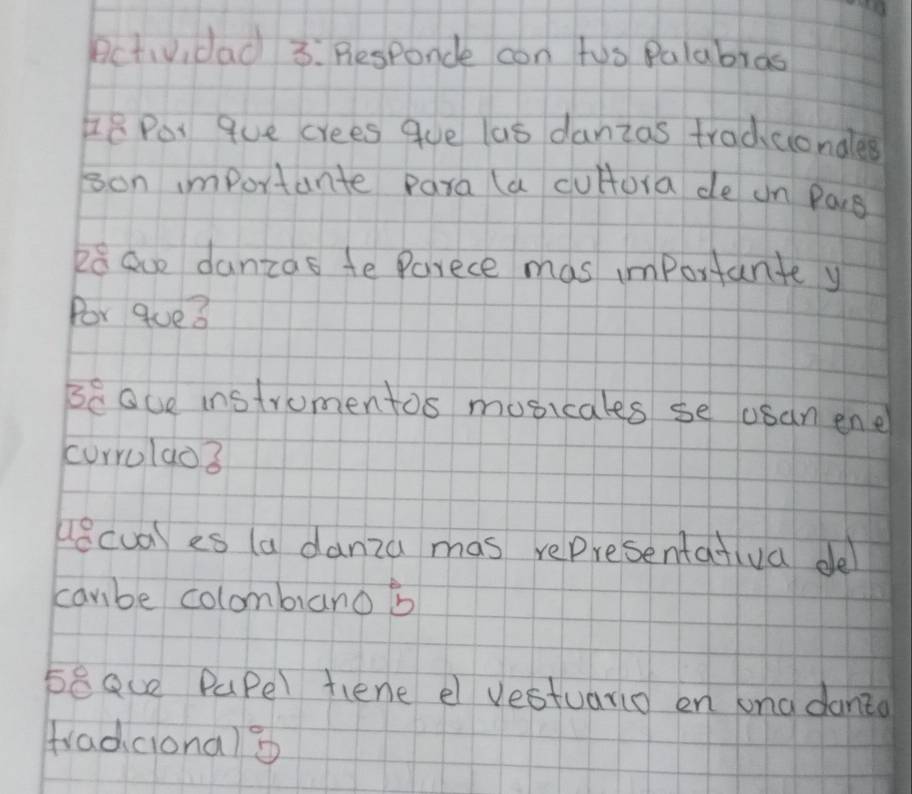 Actividad 3: Responde con tus Palabras
1¿ Por que crees que las danzas tradicionales
son importante para la cultura de un Pais
2¿ Que danzas te Parece mas importante y
Por que?
3¿ Que instrumentos musicales se usan en el
currulao?
4¿ cual es la danza mas representativa del
caribe colombiano?
5¿ Que Papel tiene el vestuario en una danza
tradicional?